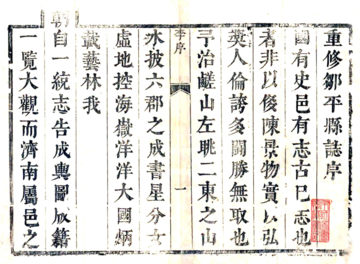 重修鄒平縣誌序
國有史邑有志古已志也
者非以侈陳景物實以弘
英人倫誇多鬪勝無取也
平治鹺山左眺二東之山
水披六郡之成書星分女
虛地控海嶽洋洋大國炳
載藝林我
李序
一
朝
自一統志告成輿圖版籍
一覽大觀而濟南屬邑之